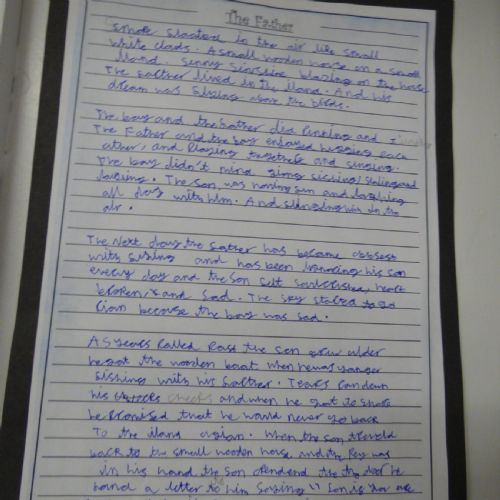 The Father
smoke floated in the air like small
white clods. A small wooden house on a small
Iland. Sunny sunshine blazing on the house
The father lived in the Iland. And his
dream was flying above the birds.
The boy and the father did fishing and
The Father and the boy enlayed hugging each
other, and Playing together and singing.
The boy didn't mind going fishing
. The son, was having fun and laughing
all day with him. And swinging him in the
air.
The Next day the father has became obbsest
with fishing and has been ignoring his son
every day and the son felt heart
broken, and sad. The sky started to
because the boy was sad.
As years Rolled Past the son grew older
he got the wooden boat when he was younger
fishing with his father. Tears ran down
his cheeks and when he got to shore
he promised that he would never go back
To the iland agian. When the son
back to the small wooden house, and the key was
in his hand the son the door he
hand a letter to him saying "